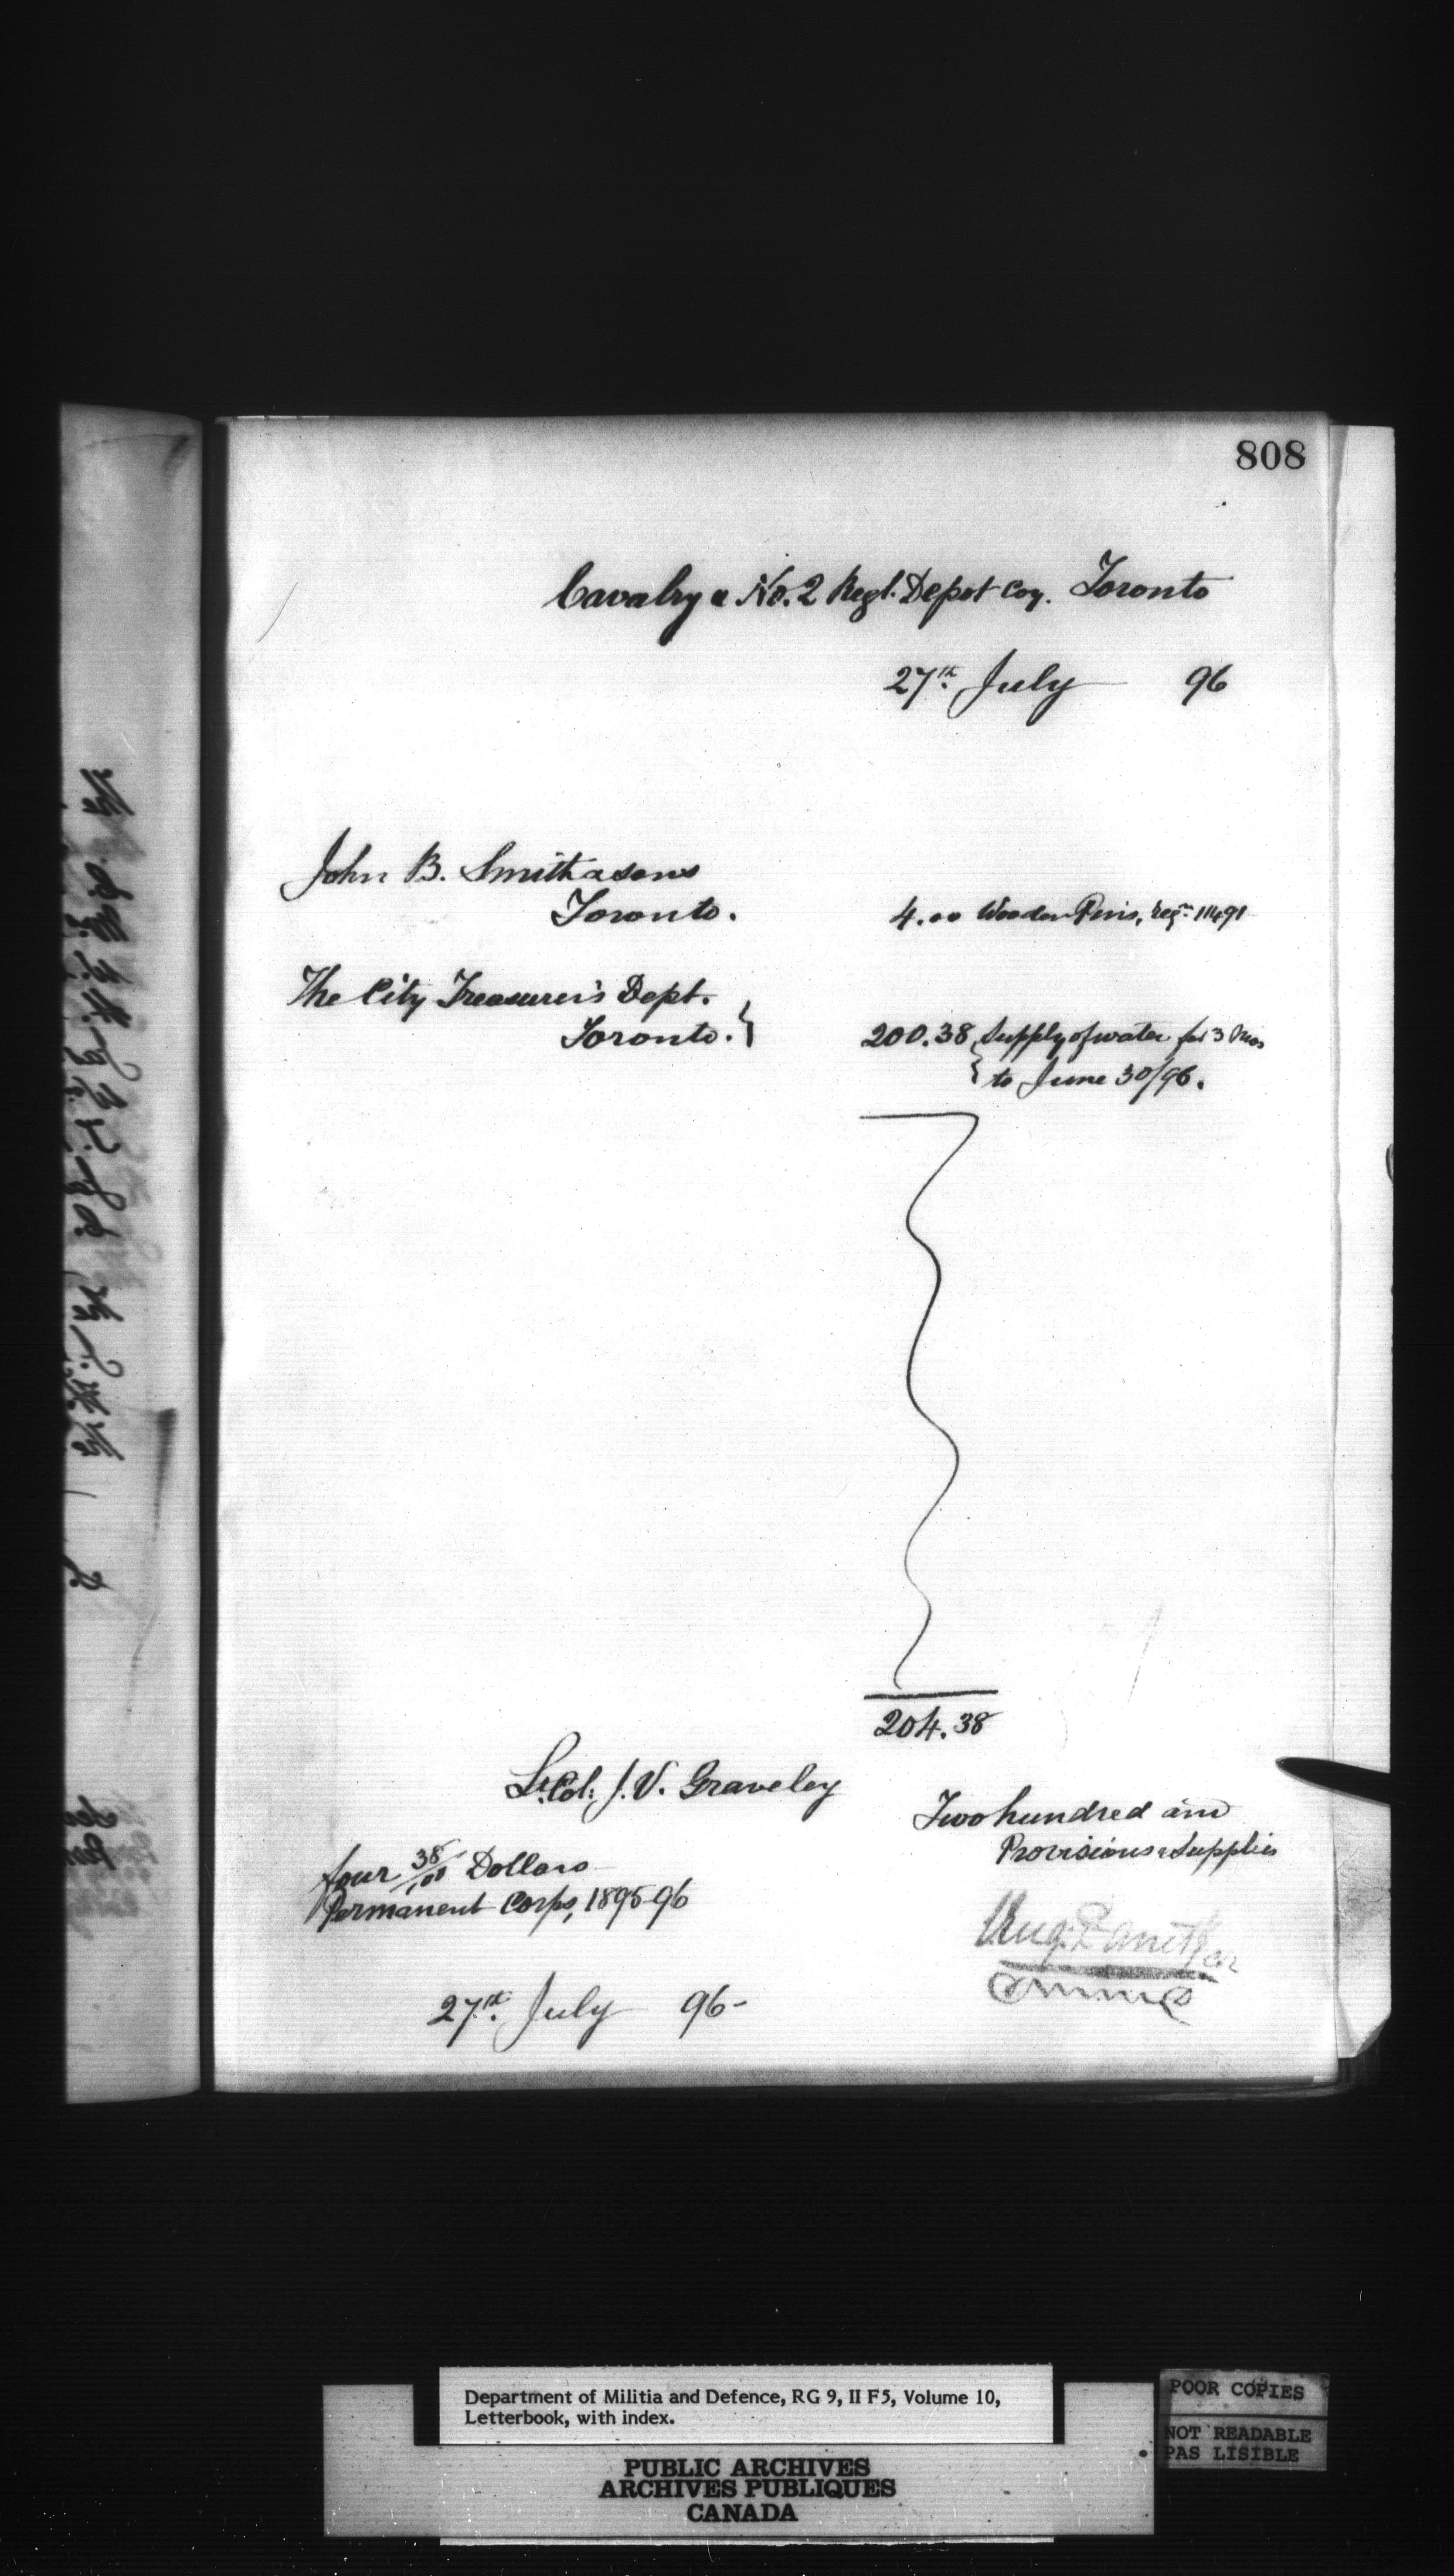 808
Cavalry & No. 2 Regl. Depot Coy. Toronto
27th July 96
John B. Smith & Sons
Toronto.
4.00 Wooden Pins, Regn 11491
The City Treasurer's Dept.
Toronto.
200.38 Supply of water for 3 mos
to June 30/96.
204.38
Lt. Col. J. V. Graveley
Two hundred and
four 38/100 Dollars
Provisions & Supplies
Permanent Corps, 1895-96
27th July 96-
Department of Militia and Defence, RG 9, II F5, Volume 10,
Letterbook, with index.
PUBLIC ARCHIVES
ARCHIVES PUBLIQUES
CANADA
POOR COPIES
NOT READABLE
PAS LISIBLE